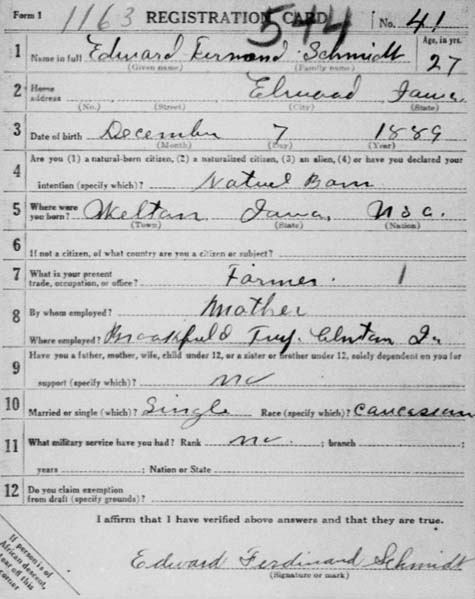 Form 1 1163 REGISTRATION CARD 544 No. 41
1 Name in full Edward Fernand Schmidt Age, in yrs. 27
(Given name) (Family name)
2 Home address Elwood Iowa
(No.) (Street) (City) (State)
3 Date of birth December 7 1889
(Month) (Day) (Year)
4 Are you (1) a natural-born citizen, (2) a naturalized citizen, (3) an alien, (4) or have you declared your
intention (specify which)? Natuel Born
5 Where were you born? Welton Iowa U S a.
(Town) (State) (Nation)
6 If not a citizen, of what country are you a citizen or subject?
7 What is your present trade, occupation, or office? Farmer 1
8 By whom employed? Mother
Where employed? Brookfield Twp. Clinton Ia
9 Have you a father, mother, wife, child under 12, or a sister or brother under 12, solely dependent on you for
support (specify which)? no
10 Married or single (which)? Single Race (specify which)? Caucasian
11 What military service have you had? Rank no ; branch ;
years ; Nation or State
12 Do you claim exemption from draft (specify grounds)?
I affirm that I have verified above answers and that they are true.
Edward Ferdinard Schmidt
(Signature or mark)
If person is of
African descent,
tear off this
corner